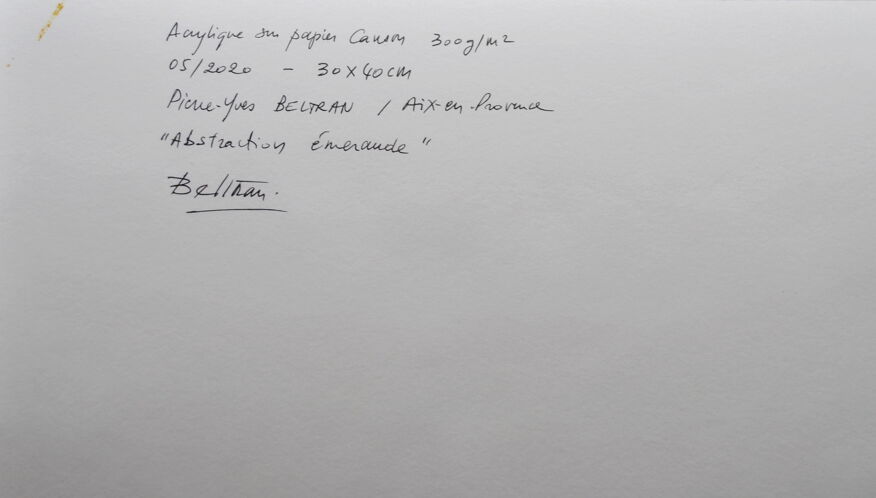 Acrylique sur papier Canson 300g/m²
05/2020 - 30x40cm
Pierre-Yves BELTRAN / Aix-en-Provence
"Abstraction émeraude"
Beltran.